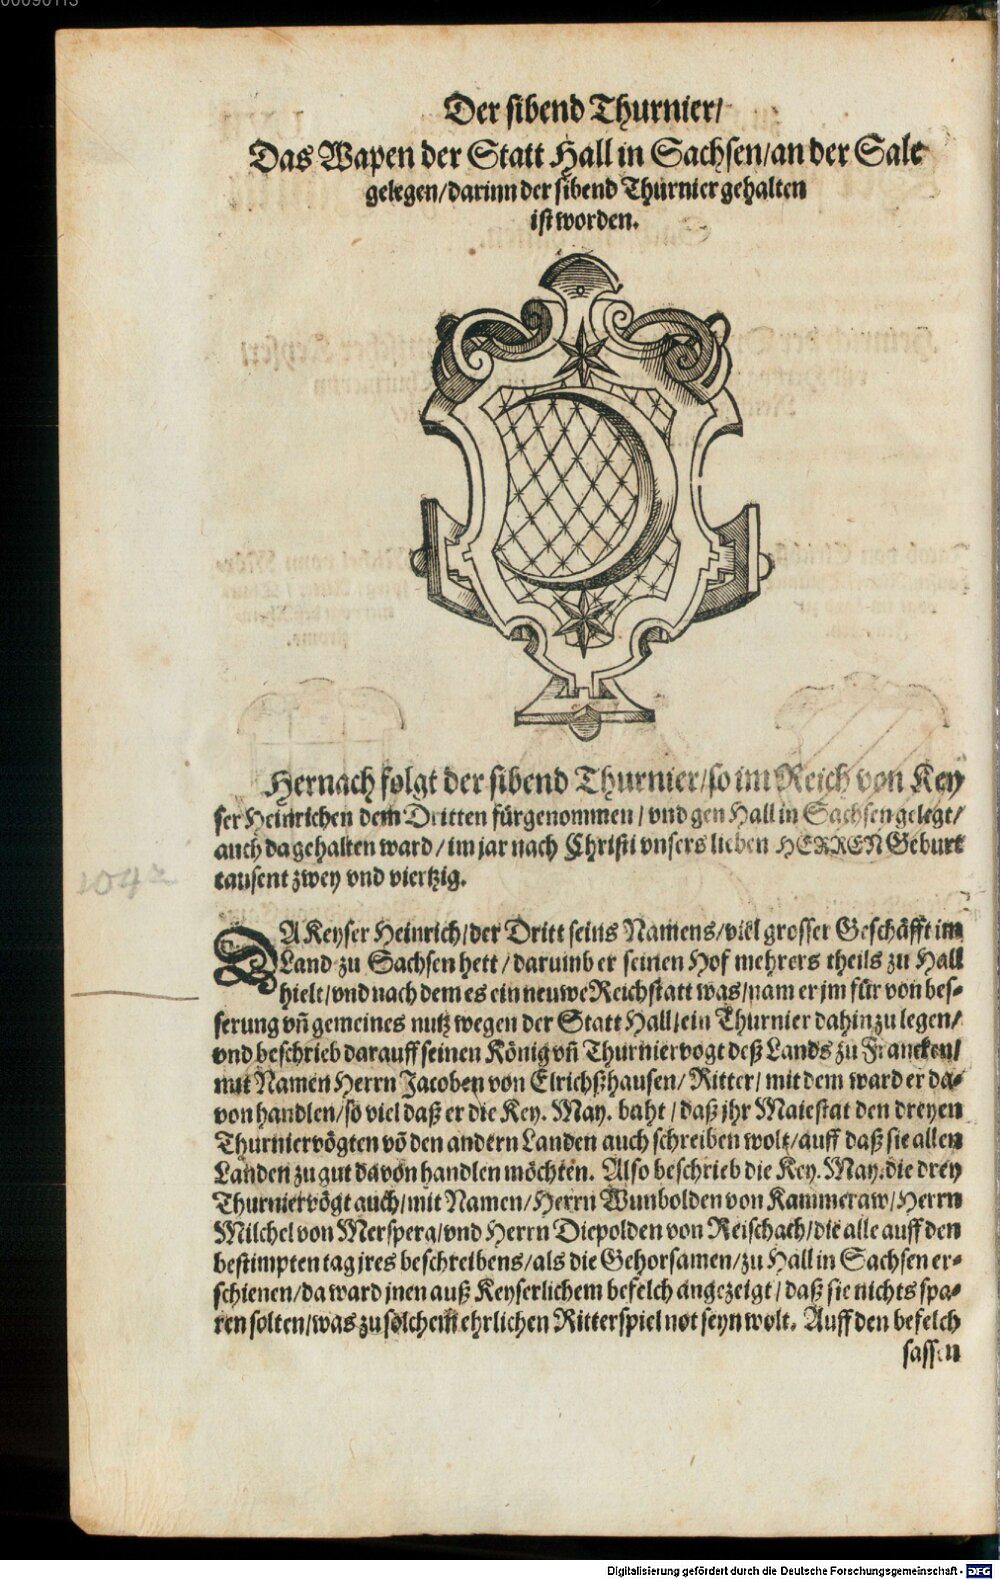 Der sibend Thurnier/
Das Wapen der Statt Hall in Sachsen/an der Sale
gelegen/darinn der sibend Thurnier gehalten
ist worden.
Hernach folgt der sibend Thurnier/so im Reich von Key
ser Heinrichen dem Dritten fürgenommen/vnd gen Hall in Sachsen gelegt/
auch da gehalten ward/im jar nach Christi vnsers lieben HERREN Geburt
tausent zwey vnd viertzig.
1042
DA Keyser Heinrich/der Dritt seins Namens/viel grosser Geschäfft im
Land zu Sachsen hett/darumb er seinen Hof mehrers theils zu Hall
hielt/vnd nach dem es ein neuwe Reichstatt was/nam er jm für von bes-
serung vñ gemeines nutz wegen der Statt Hall/ein Thurnier dahin zu legen/
vnd beschrieb darauff seinen König vñ Thurniervogt deß Lands zu Francken/
mit Namen Herrn Jacoben von Elrichßhausen/Ritter/mit dem ward er da-
von handlen/so viel daß er die Key. May. baht/daß jhr Maiestat den dreyen
Thurniervögten võ den andern Landen auch schreiben wolt/auff daß sie allen
Landen zu gut davon handlen möchten. Also beschrieb die Key. May. die drey
Thurniervögt auch/mit Namen/Herrn Wunbolden von Kammeraw/Herrn
Milchel von Mersperg/vnd Herrn Diepolden von Reischach/die alle auff den
bestimpten tag jres beschreibens/als die Gehorsamen/zu Hall in Sachsen er-
schienen/da ward jnen auß Keyserlichem befelch angezeigt/daß sie nichts spa-
ren solten/was zu solchem ehrlichen Ritterspiel not seyn wolt. Auff den befelch
sassen
Digitalisierung gefördert durch die Deutsche Forschungsgemeinschaft - DFG